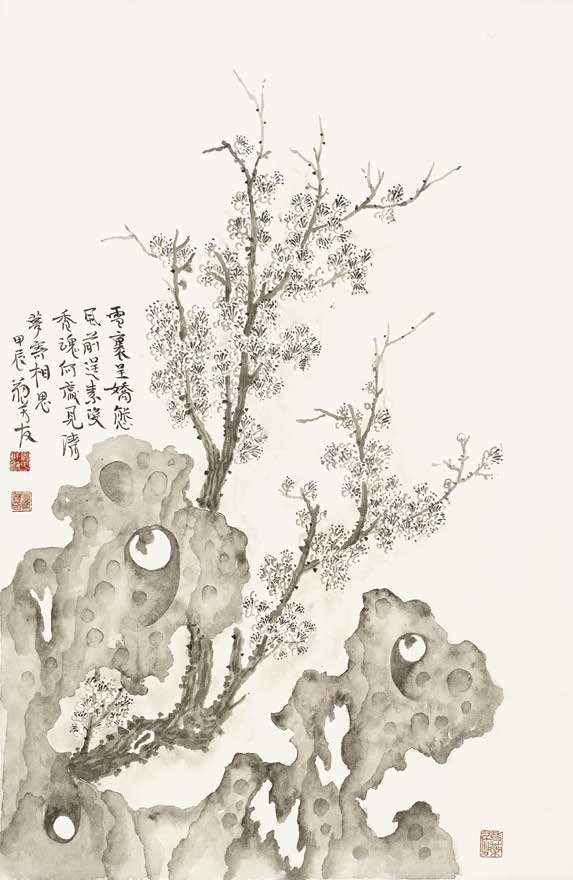 雪裏呈嬌態
風前逞素姿
香魂何處見清
夢寄相思
甲辰